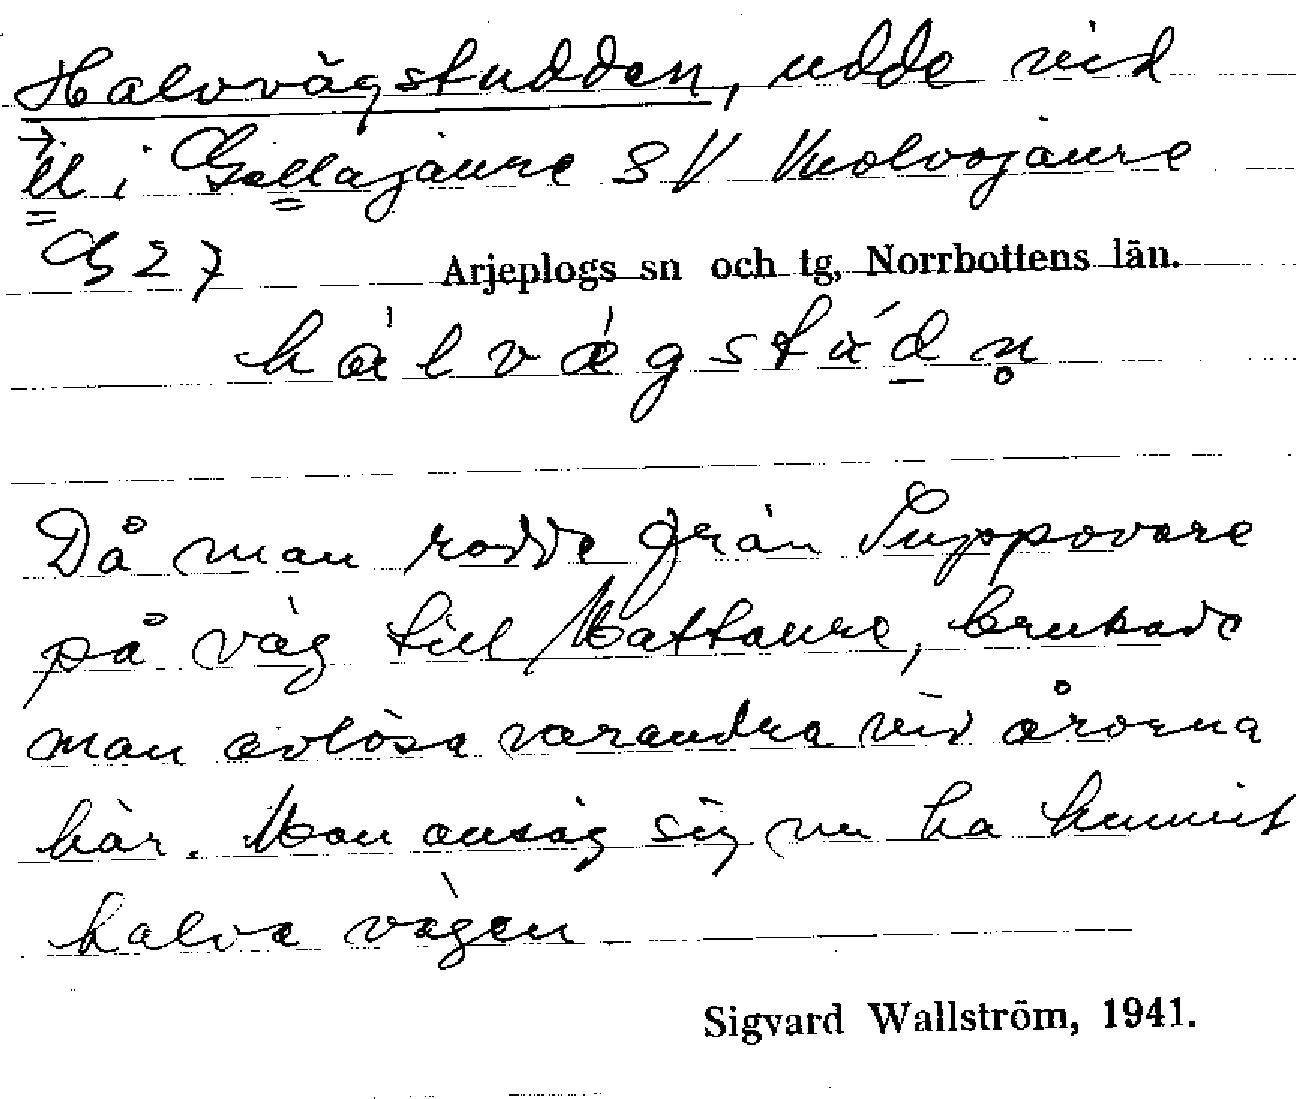 Halvvägsudden, udde vid
→ ll i Gellajaure SV Vuolvojaure
G 27
Arjeplogs sn och tg, Norrbottens län.
Då man rodde från Suppovare
på väg till Mattaure, brukade
man avlösa varandra vid årorna
här. Man ansåg sig nu ha hunnit
halva vägen
Sigvard Wallström, 1941.